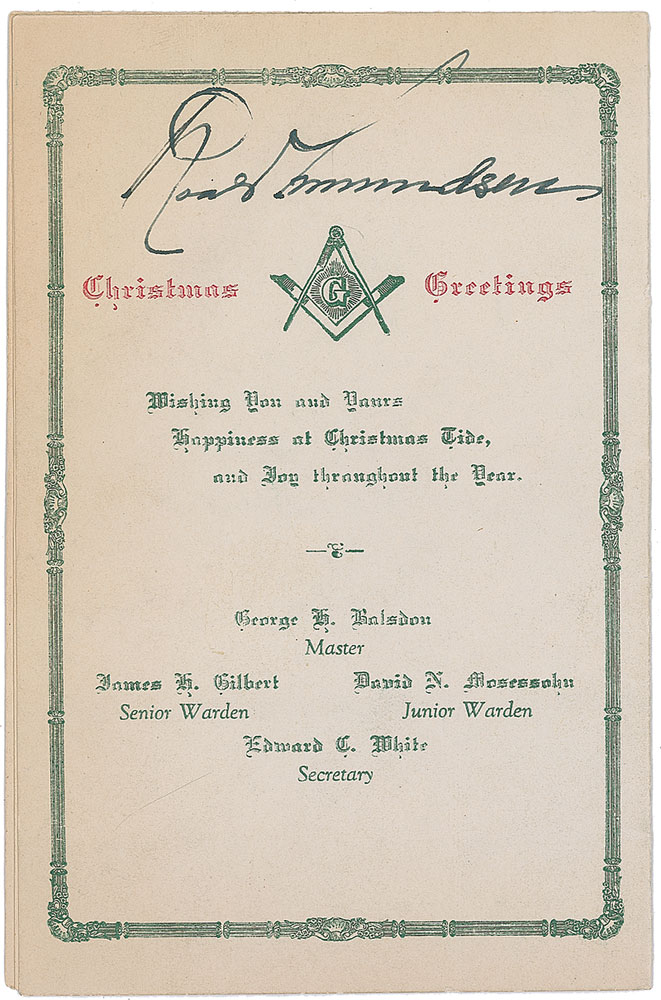 Roald Amundsen
G
Christmas Greetings
Wishing You and Yours
Happiness at Christmas Tide,
and Joy throughout the Year.
George H. Balsdon
Master
James H. Gilbert David N. Mosessohn
Senior Warden Junior Warden
Edward C. White
Secretary